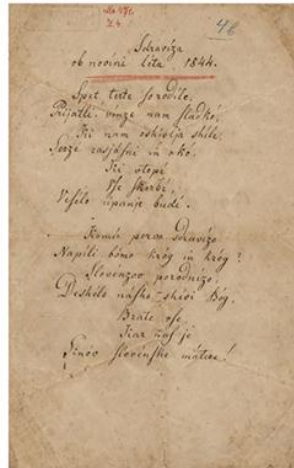 46
Sdravíza
ob novini léta 1844.
Spet terte so rodile,
Prijatli! vinze nam sladkó,
Ki nam oshivlja shile,
Serzé rasjásni in okó.
Ki vtopi
Vse skerbi,
Veselo upanje budi.
Komú pervo sdravizo
Napili bómo króg in króg?
Slovenzov porodnizo,
Deshélo násho shivi Bóg.
Brate vse
Kar nas je
Sinóv slovénske mátere!